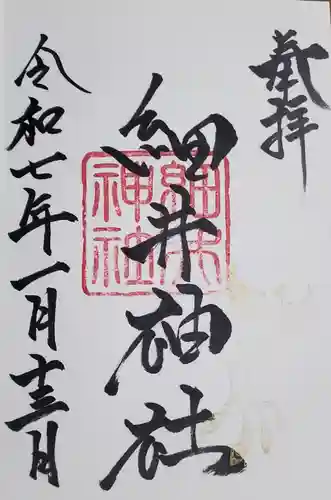 奉拝
細井神社
令和七年一月十三日
細井
神社